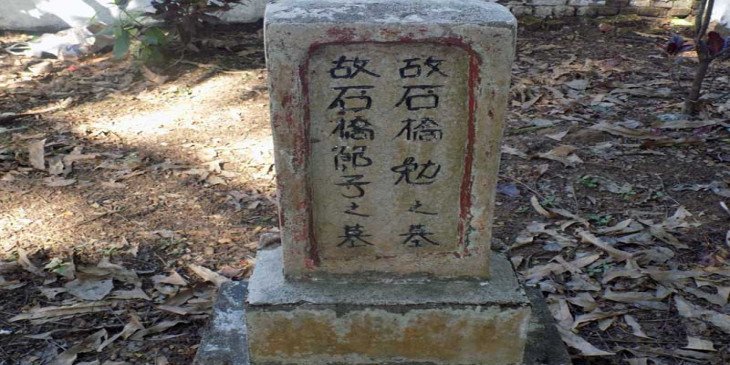 故石橋勉之墓
故石橋節子之墓